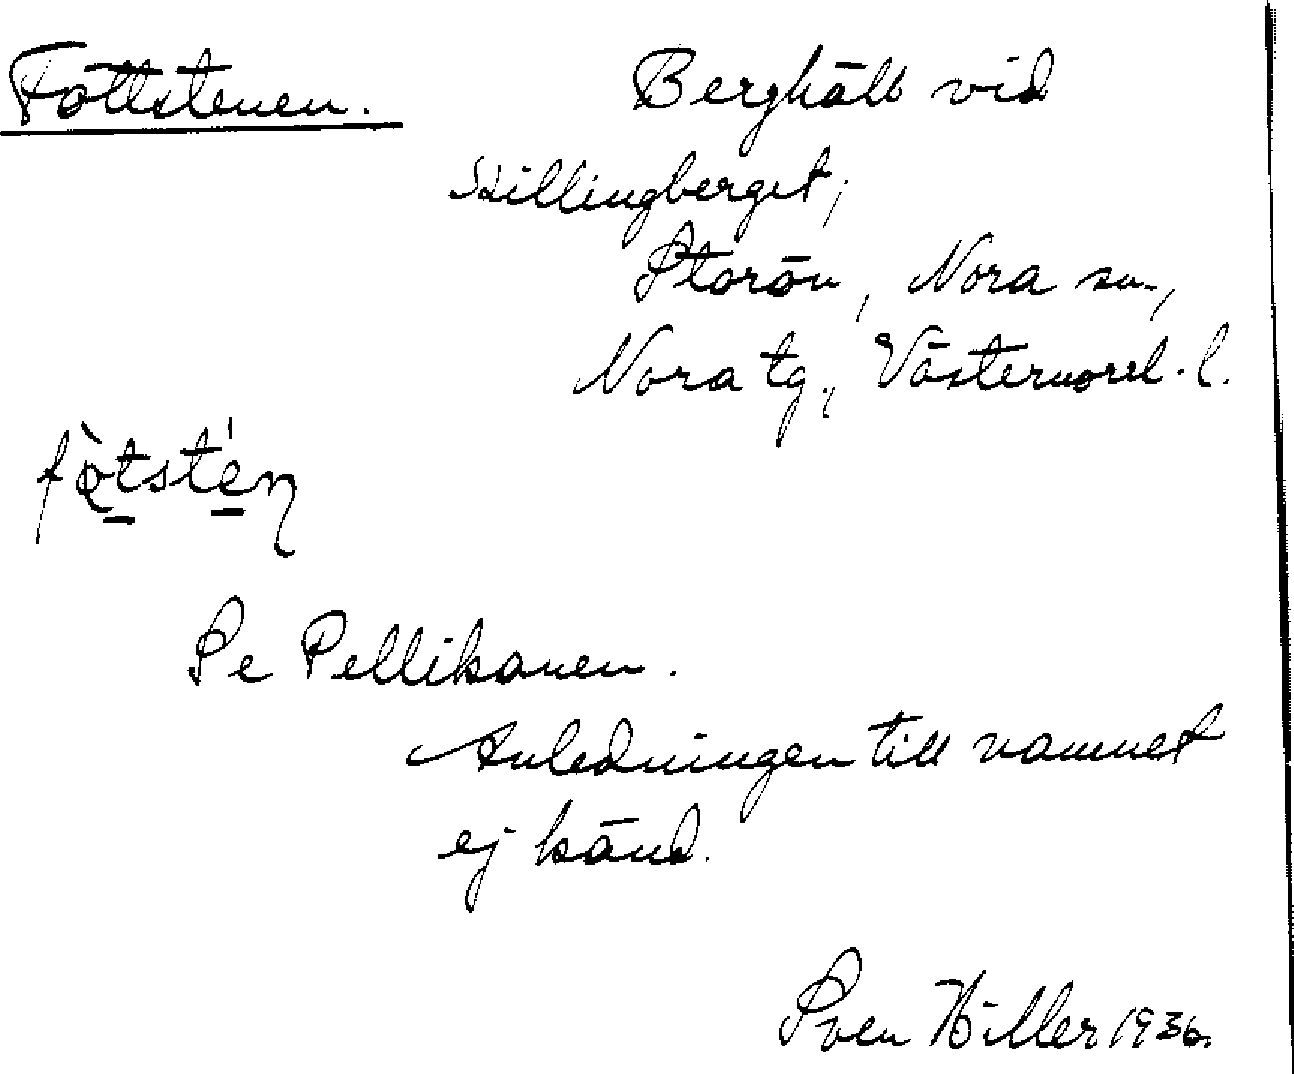 Föttstenen. Berghäll vid
Skillingberget,
Storön, Nora sn.,
Nora tg., Västernorrl. l.
Se Pellikanen.
Anledningen till namnet
ej känd.
Sven Hiller 1936.